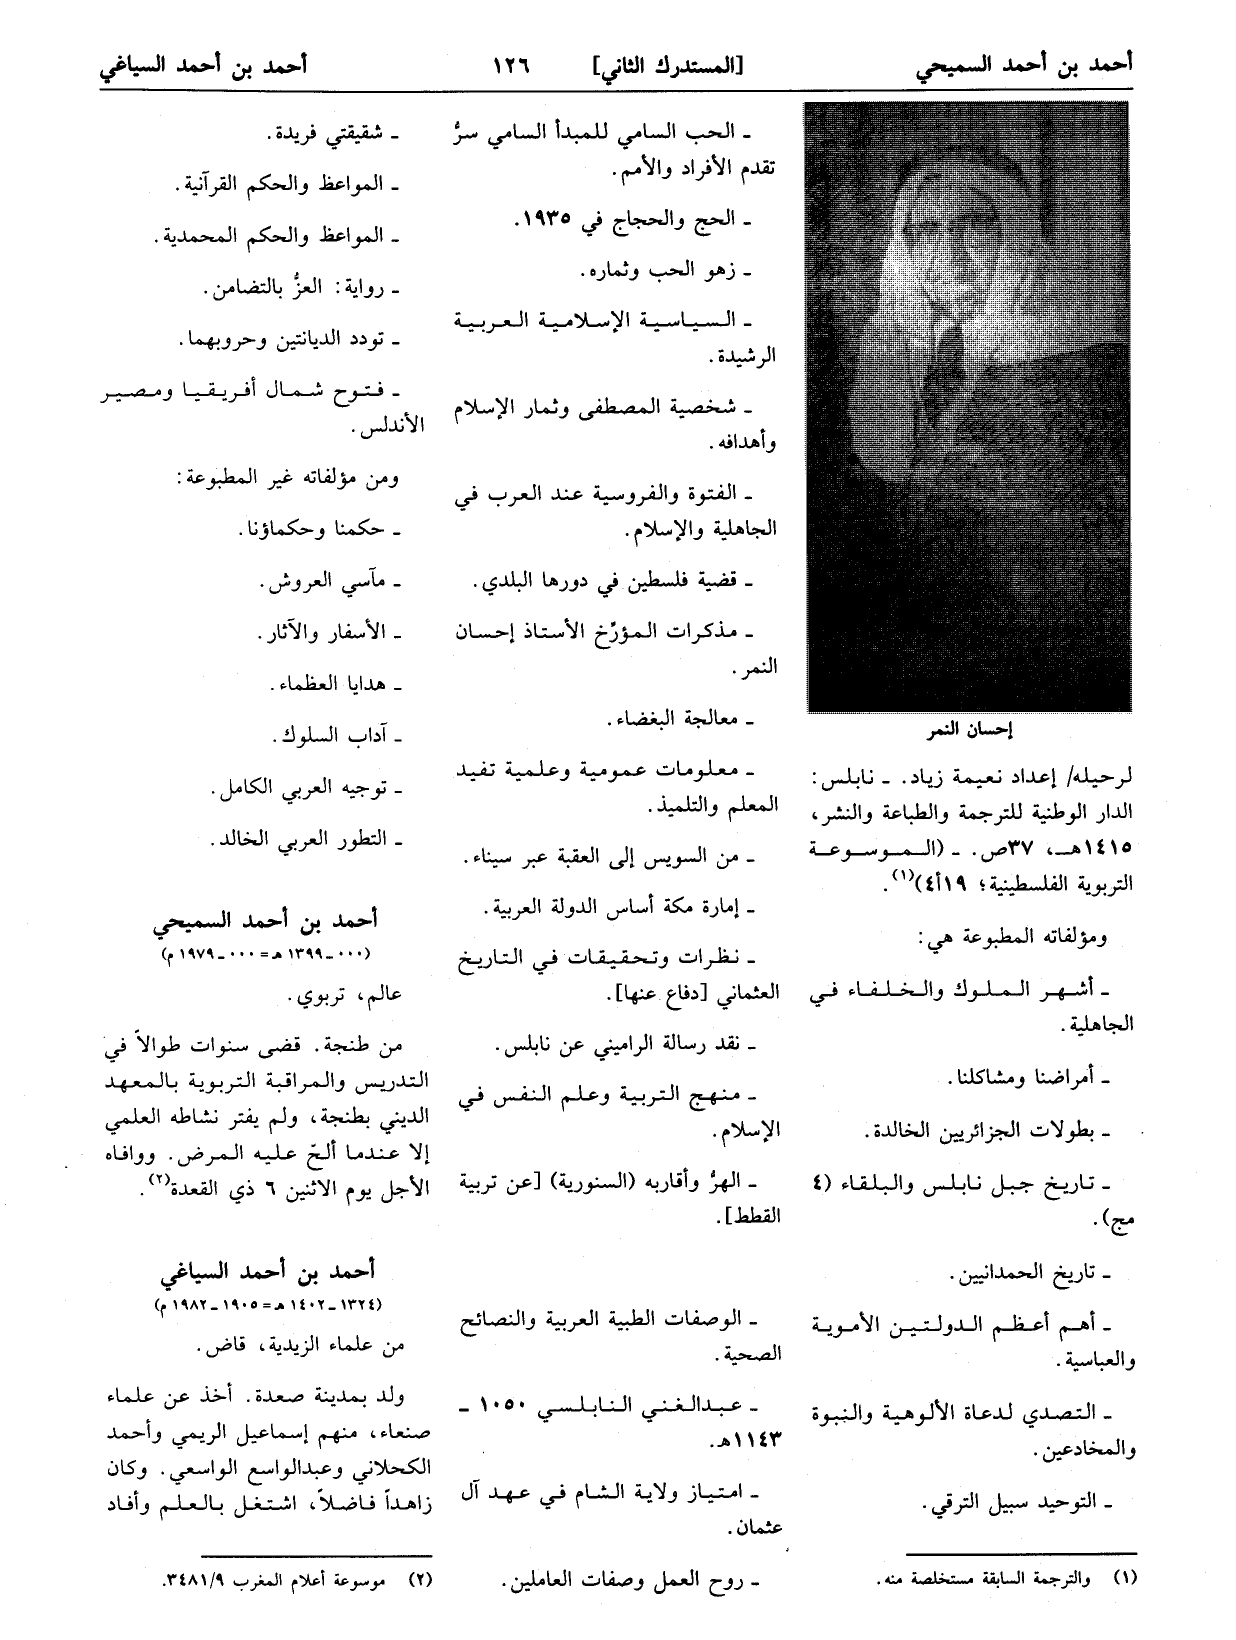 أحمد بن أحمد السميحي
[المستدرك الثاني]
١٢٦
أحمد بن أحمد السياغي
إحسان النمر
لرحيله/ إعداد نعيمة زياد. ـ نابلس:
الدار الوطنية للترجمة والطباعة والنشر،
١٤١٥هـ، ٣٧ص. ـ (الموسوعة
التربوية الفلسطينية؛ ١٩أ٤)(١).
ومؤلفاته المطبوعة هي:
ـ أشهر الملوك والخلفاء في
الجاهلية.
ـ أمراضنا ومشاكلنا.
ـ بطولات الجزائريين الخالدة.
ـ تاريخ جبل نابلس والبلقاء (٤
مج).
ـ تاريخ الحمدانيين.
ـ أهم أعظم الدولتين الأموية
والعباسية.
ـ التصدي لدعاة الألوهية والنبوة
والمخادعين.
ـ التوحيد سبيل الترقي.
(١) والترجمة السابقة مستخلصة منه.
ـ الحب السامي للمبدأ السامي سرُّ
تقدم الأفراد والأمم.
ـ الحج والحجاج في ١٩٣٥.
ـ زهو الحب وثماره.
ـ السياسية الإسلامية العربية
الرشيدة.
ـ شخصية المصطفى وثمار الإسلام
وأهدافه.
ـ الفتوة والفروسية عند العرب في
الجاهلية والإسلام.
ـ قضية فلسطين في دورها البلدي.
ـ مذكرات المؤرّخ الأستاذ إحسان
النمر.
ـ معالجة البغضاء.
ـ معلومات عمومية وعلمية تفيد
المعلم والتلميذ.
ـ من السويس إلى العقبة عبر سيناء.
ـ إمارة مكة أساس الدولة العربية.
ـ نظرات وتحقيقات في التاريخ
العثماني [دفاع عنها].
ـ نقد رسالة الراميني عن نابلس.
ـ منهج التربية وعلم النفس في
الإسلام.
ـ الهرُّ وأقاربه (السنورية) [عن تربية
القطط].
ـ الوصفات الطبية العربية والنصائح
الصحية.
ـ عبدالغني النابلسي ١٠٥٠ ـ
١١٤٣هـ.
ـ امتياز ولاية الشام في عهد آل
عثمان.
ـ روح العمل وصفات العاملين.
ـ شقيقتي فريدة.
ـ المواعظ والحكم القرآنية.
ـ المواعظ والحكم المحمدية.
ـ رواية: العزُّ بالتضامن.
ـ تودد الديانتين وحروبهما.
ـ فتوح شمال أفريقيا ومصير
الأندلس.
ومن مؤلفاته غير المطبوعة:
ـ حكمنا وحكماؤنا.
ـ مآسي العروش.
ـ الأسفار والآثار.
ـ هدايا العظماء.
ـ آداب السلوك.
ـ توجيه العربي الكامل.
ـ التطور العربي الخالد.
أحمد بن أحمد السميحي
(٠٠٠ـ١٣٩٩ هـ = ٠٠٠ـ١٩٧٩ م)
عالم، تربوي.
من طنجة. قضى سنوات طوالاً في
التدريس والمراقبة التربوية بالمعهد
الديني بطنجة، ولم يفتر نشاطه العلمي
إلا عندما ألحّ عليه المرض. ووافاه
الأجل يوم الاثنين ٦ ذي القعدة(٢).
أحمد بن أحمد السياغي
(١٣٢٤ـ١٤٠٢ هـ = ١٩٠٥ـ١٩٨٢ م)
من علماء الزيدية، قاض.
ولد بمدينة صعدة. أخذ عن علماء
صنعاء، منهم إسماعيل الريمي وأحمد
الكحلاني وعبدالواسع الواسعي. وكان
زاهداً فاضلاً، اشتغل بالعلم وأفاد
(٢) موسوعة أعلام المغرب ٣٤٨١/٩.